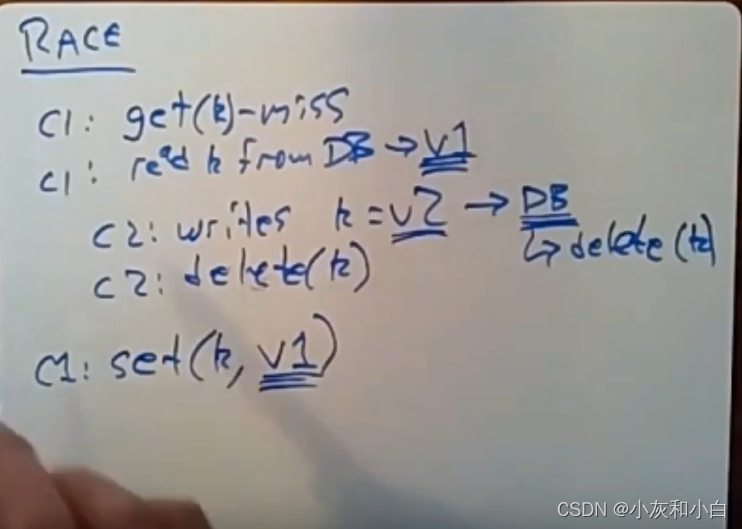 RACE
C1: get(k)-miss
C1: read k from DB → v1
C2: writes k = v2 → DB
↳ delete(k)
C2: delete(k)
C1: set(k, v1)
CSDN @小灰和小白